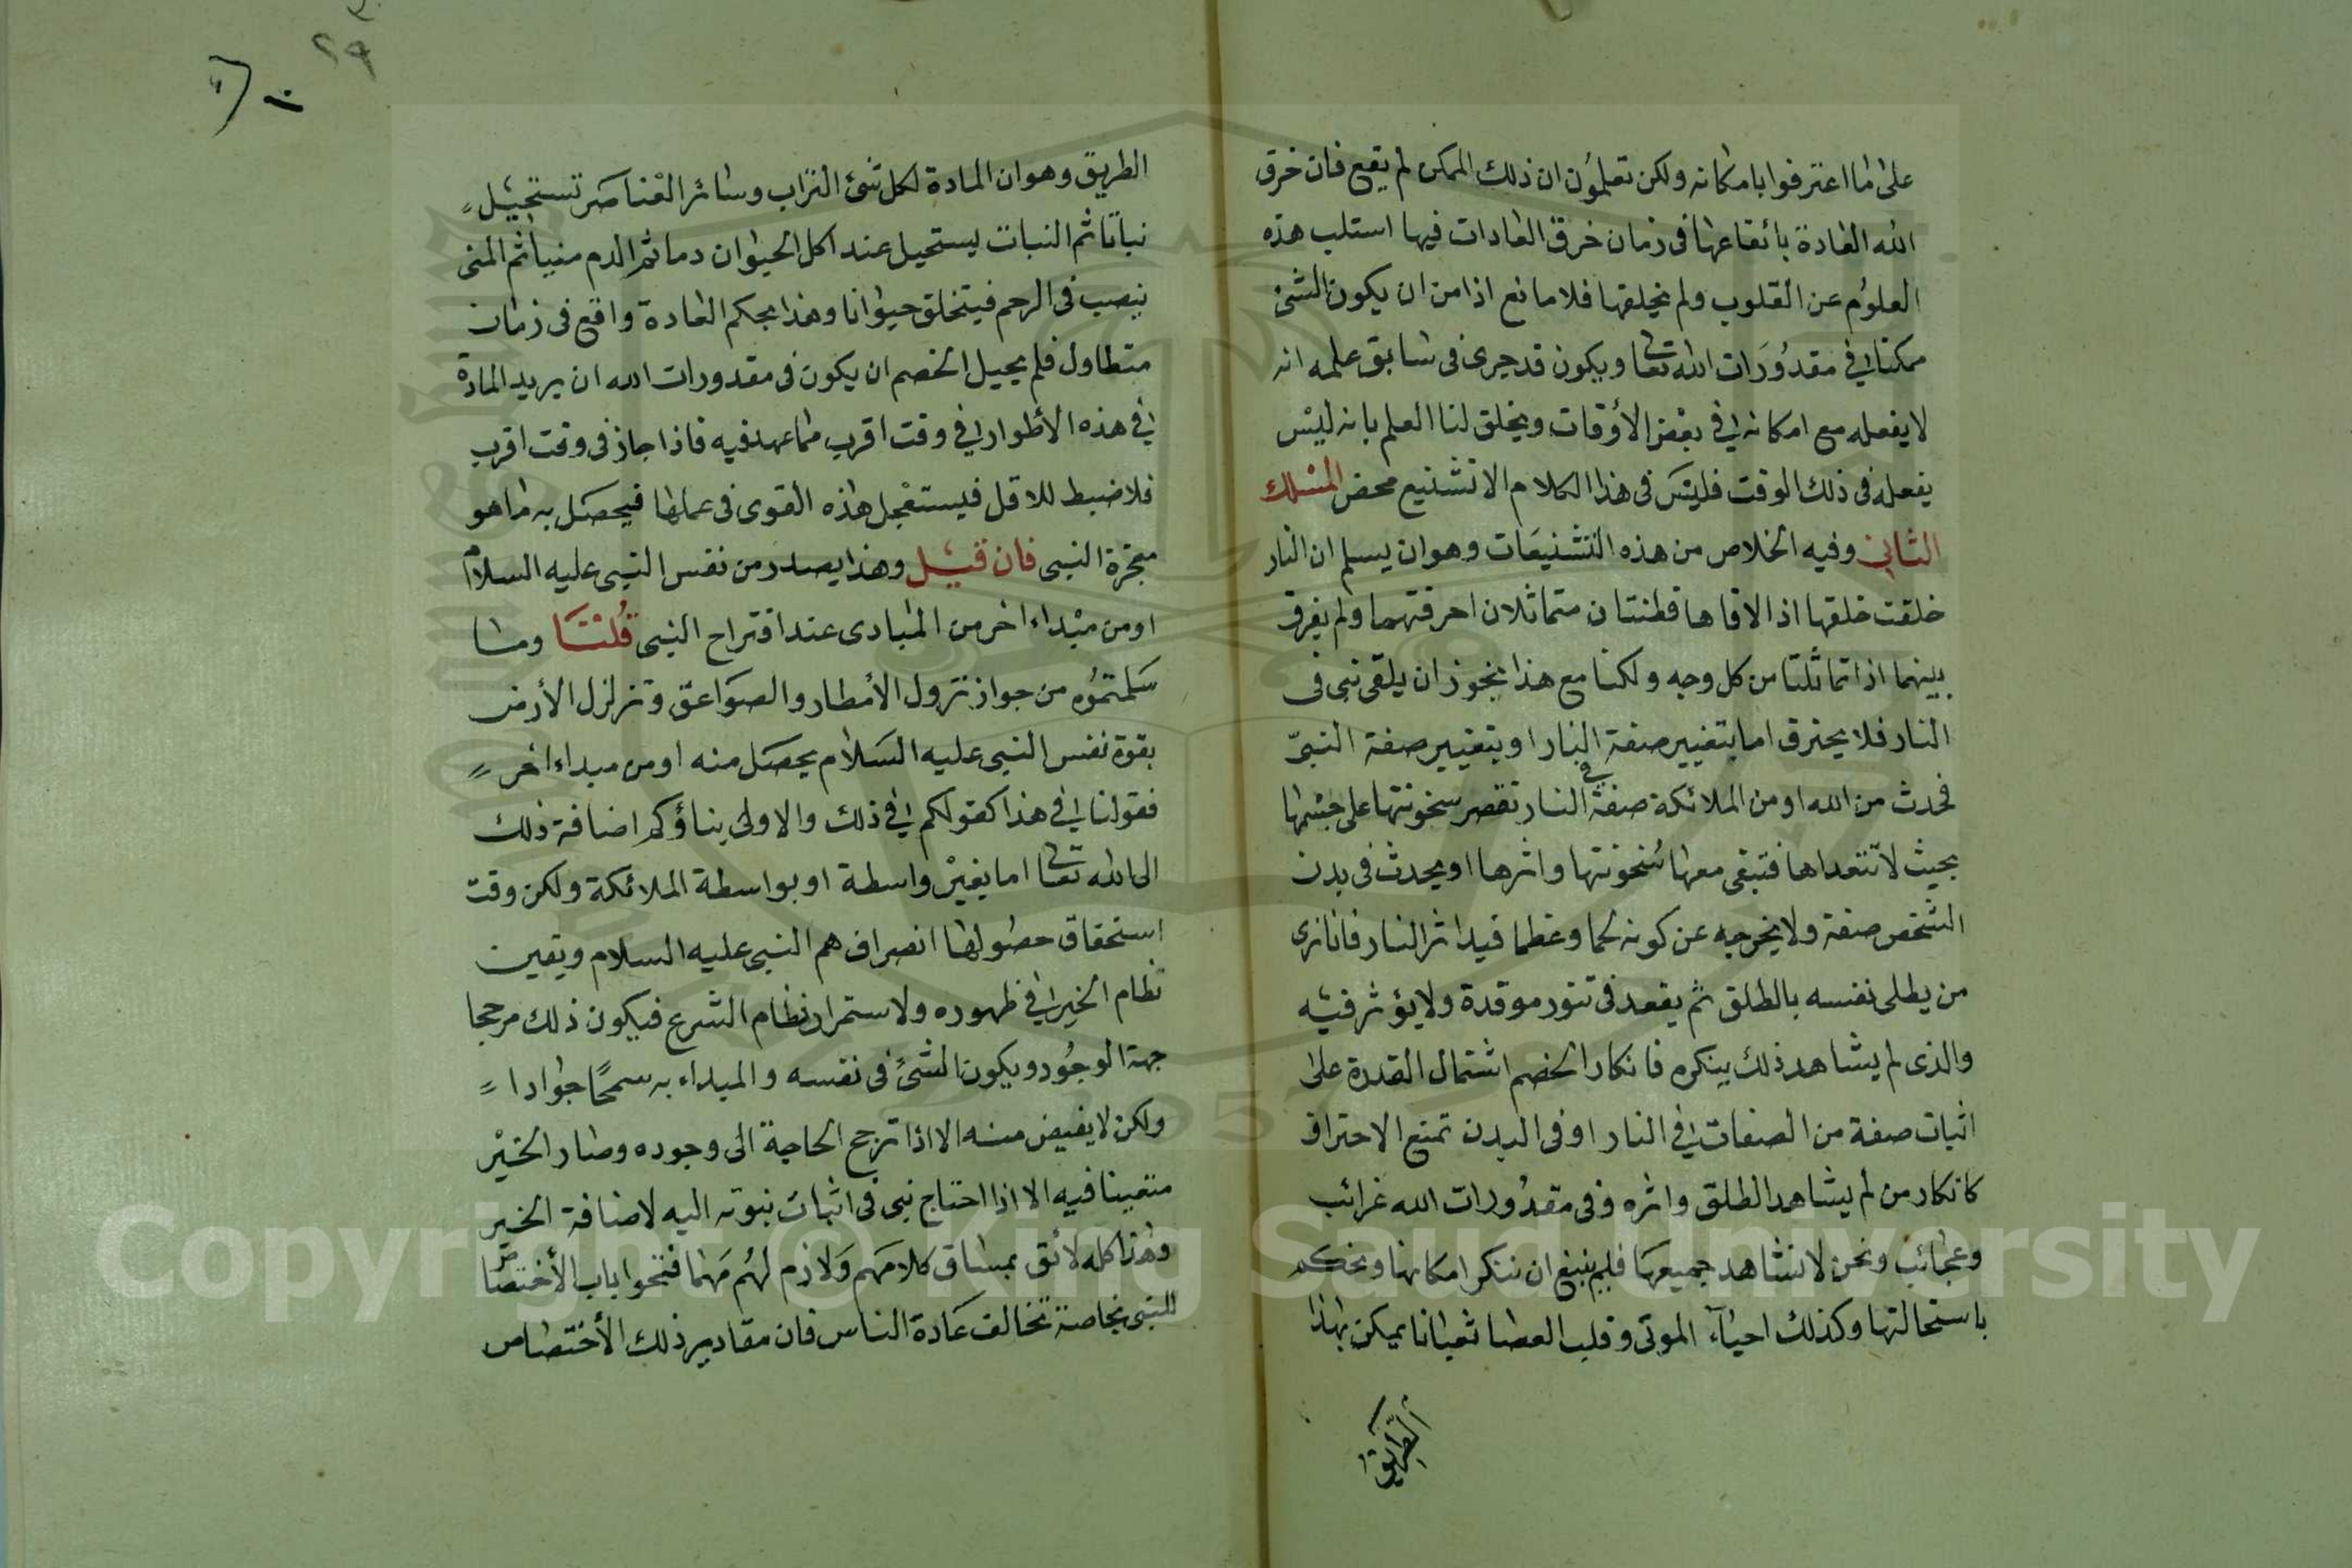 على ما اعترفوا بامكانه ولكن تعلمون ان ذلك الممكن لم يقع فان خرق
الله العادة بائقاعها في زمان خرق العادات فيها استلب هذه
العلوم عن القلوب ولم يخلقها فلا مانع اذا من ان يكون الشئ
ممكنا في مقدورات الله تعا ويكون قد جرى في سابق علمه انه
لا يفعله مع امكانه في بعض الأوقات ويخلق لنا العلم بانه ليس
يفعله في ذلك الوقت فليس في هذا الكلام الا تشنيع محض المسلك
الثاني وفيه الخلاص من هذه التشنيعات وهو ان يسلم ان النار
خلقت خلقها اذا لاقاها قطنتان متماثلان احرقتهما ولم يفرق
بينهما اذا تماثلتا من كل وجه ولكنا مع هذا نجوز ان يلقى نبى فى
النار فلا يحترق اما بتغيير صفة النار او بتغيير صفة النبىّ
فحدث من الله او من الملائكة صفة في النار تقصر سخونتها على جسمها
بحيث لا تتعداها فتبقى معها سخونتها واثرها او يحدث في بدن
الشخص صفة ولا يخرجه عن كونه لحما وعظما فيدا ثر النار فانا نرى
من يطلى نفسه بالطلق ثم يقعد فى تنور موقدة ولا يؤثر فيه
والذى لم يشاهد ذلك ينكره فانكار الخصم اشتمال القدرة على
اثبات صفة من الصفات في النار او فى البدن تمنع الاحتراق
كانكار من لم يشاهد الطلق واثره وفى مقدورات الله غرائب
وعجائب ونحن لا نشاهد جميعها فلم ينبغ ان ننكر امكانها ونحكم
باستحالتها وكذلك احياء الموتى وقلب العصا ثعبانا يمكن بهذا
الطريق
٢٩
الطريق وهو ان المادة لكل شئ التراب وسائر العناصر تستحيل
نباتا ثم النبات يستحيل عند اكل الحيوان دما ثم الدم منيا ثم المنى
ينصب فى الرحم فيتخلق حيوانا وهذا بحكم العادة واقع فى زمان
متطاول فلم يحيل الخصم ان يكون فى مقدورات الله ان يريد المادة
في هذه الأطوار في وقت اقرب مما عهد فيه فاذا جاز فى وقت اقرب
فلا ضبط للاقل فيستعجل هذه القوى فى عملها فيحصل به ما هو
معجزة النبى فان قيل وهذا يصدر من نفس النبى عليه السلام
او من مبداء اخر من المبادى عند اقتراح النبى قلنا وما
سلمتموه من جواز نزول الأمطار والصواعق وتزلزل الأرض
بقوة نفس النبى عليه السلام يحصل منه او من مبداء اخر
فقولنا في هذا كقولكم في ذلك والاولى بنا وكم اضافة ذلك
الى الله تعا اما بغير واسطة او بواسطة الملائكة ولكن وقت
استحقاق حصولها انصراف هم النبى عليه السلام ويقين
نظام الخير في ظهوره ولاستمرار نظام الشرع فيكون ذلك مرجحا
جهة الوجود ويكون الشئ فى نفسه والمبداء به سمحا جوادا
ولكن لا يفيض منه الا اذا ترجح الحاجة الى وجوده وصار الخير
متعينا فيه الا اذا احتاج نبى فى اثبات نبوته اليه لاضافة الخير
وهذا كله لائق بمساق كلامهم ولازم لهم مهما فتحوا باب الأختصاص
للنبى بخاصة تخالف عادة الناس فان مقادير ذلك الأختصاص
Copyright © King Saud University